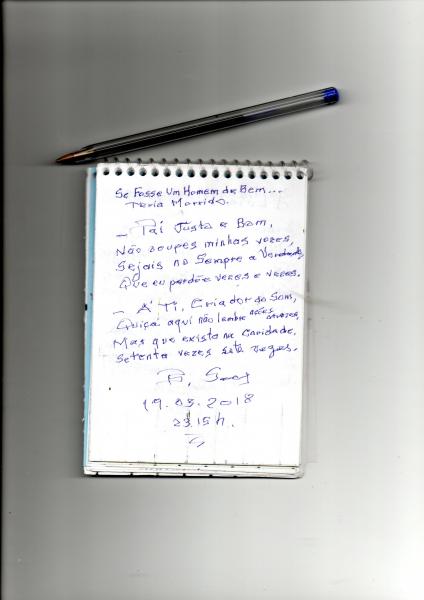 Se Fosse Um Homem de Bem...
Teria Morrido.
- Pai Justo e Bom,
Não ocupes minhas vezes,
Sejais no Sempre a Verdade,
Que eu perdôe vezes e vezes.
- A' Ti, Criador do Som,
Quiçá aqui não lembre
Mas que exista na Caridade.
Setenta vezes sete vezes.
19.03.2018
23.15h.